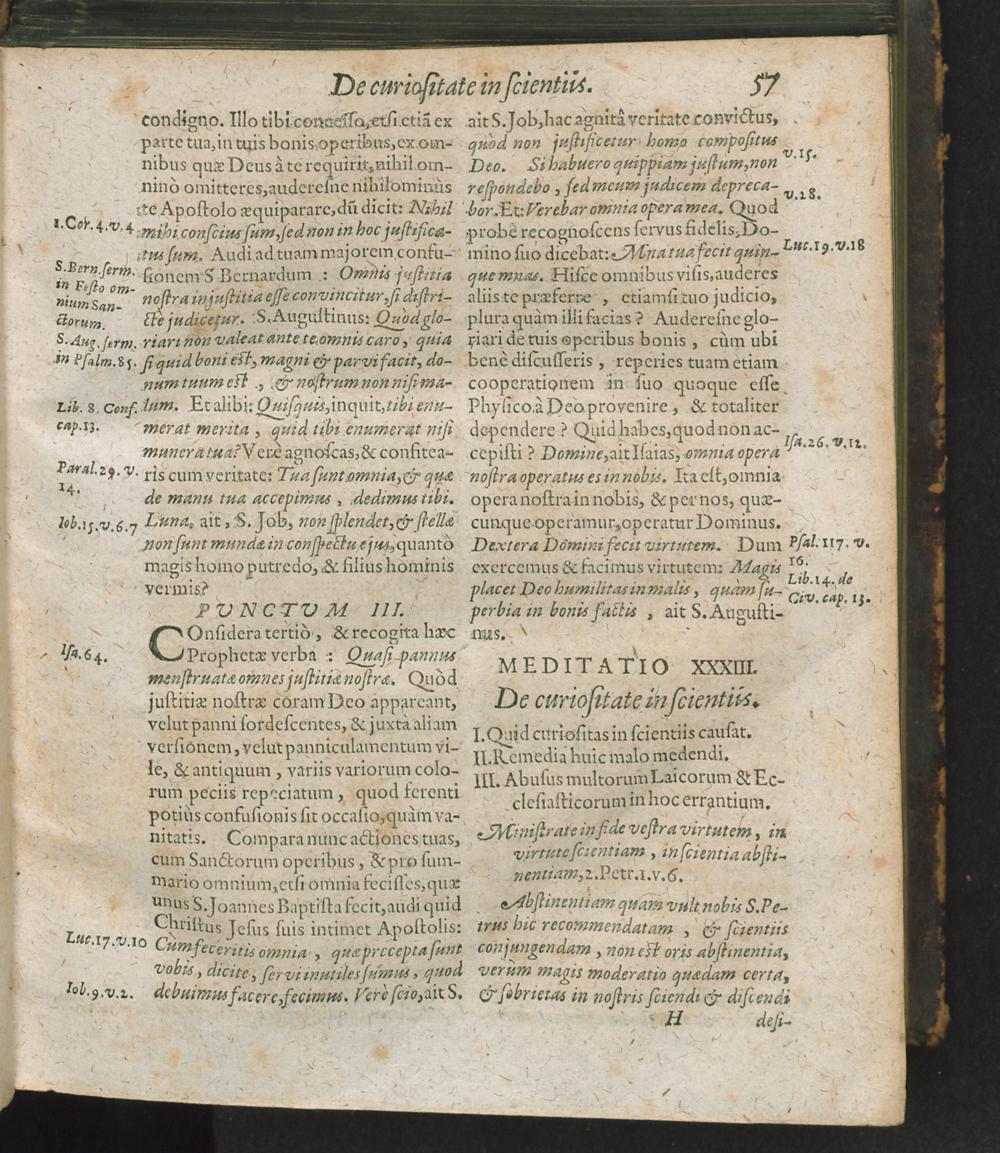 De curiositate in scientiis. 57
condigno. Illo tibi concesso, etsi etiā ex
parte tua, in tuis bonis operibus, ex om-
nibus quæ Deus à te requirit, nihil om-
ninò omitteres, auderesne nihilominùs
te Apostolo æquiparare, dū dicit: Nihil
1. Cor. 4. v. 4
mihi conscius sum, sed non in hoc justifica-
tus sum. Audi ad tuam majorem confu-
S. Bern. serm.
in Festo om-
nium San-
ctorum.
sionem S Bernardum : Omnis justitia
nostra injustitia esse convincitur, si distri-
ctè judicetur. S. Augustinus: Quòd glo-
S. Aug. serm.
in Psalm. 85.
riari non valeat ante te omnis caro, quia
si quid boni est, magni & parvi facit, do-
num tuum est , & nostrum non nisi ma-
Lib. 8. Conf.
cap. 13.
lum. Et alibi: Quisquis, inquit, tibi enu-
merat merita , quid tibi enumerat nisi
munera tua? Verè agnoscas, & confitea-
Paral. 29. v.
14.
ris cum veritate: Tua sunt omnia, & quæ
de manu tua accepimus , dedimus tibi.
Iob. 15. v. 6. 7
Luna, ait, S. Job, non splendet, & stellæ
non sunt mundæ in conspectu ejus, quantò
magis homo putredo, & filius hominis
vermis?
PVNCTVM III.
COnsidera tertiò, & recogita hæc
Isa. 64.
Prophetæ verba : Quasi pannus
menstruatæ omnes justitiæ nostræ. Quòd
justitiæ nostræ coram Deo appareant,
velut panni sordescentes, & juxtà aliam
versionem, velut panniculamentum vi-
le, & antiquum , variis variorum colo-
rum peciis repeciatum , quod ferenti
potiùs confusionis sit occasio, quàm va-
nitatis. Compara nunc actiones tuas,
cum Sanctorum operibus , & pro sum-
mario omnium, etsi omnia fecisses, quæ
unus S. Joannes Baptista fecit, audi quid
Christus Jesus suis intimet Apostolis:
Luc. 17. v. 10
Cùm feceritis omnia , quæ præcepta sunt
vobis , dicite, servi inutiles sumus, quod
Iob. 9. v. 2.
debuimus facere, fecimus. Verè scio, ait S.
ait S. Job, hac agnitâ veritate convictus,
quòd non justificetur homo compositus
v. 15.
Deo. Si habuero quippiam justum, non
respondebo , sed meum judicem depreca-
v. 28.
bor. Et: Verebar omnia opera mea. Quod
probè recognoscens servus fidelis, Do-
Luc. 19. v. 18
mino suo dicebat: Mna tua fecit quin-
que mnas. Hisce omnibus visis, auderes
aliis te præferre , etiamsi tuo judicio,
plura quàm illi facias? Auderesne glo-
riari de tuis operibus bonis , cùm ubi
benè discusseris , reperies tuam etiam
cooperationem in suo quoque esse
Physico à Deo provenire , & totaliter
dependere ? Quid habes, quod non ac-
Isa. 26. v. 12.
cepisti ? Domine, ait Isaias, omnia opera
nostra operatus es in nobis. Ita est, omnia
opera nostra in nobis, & per nos, quæ-
cunque operamur, operatur Dominus.
Psal. 117. v.
16.
Dextera Domini fecit virtutem. Dum
exercemus & facimus virtutem: Magis
Lib. 14. de
Civ. cap. 13.
placet Deo humilitas in malis , quàm su-
perbia in bonis factis , ait S. Augusti-
nus.
MEDITATIO XXXIII.
De curiositate in scientiis.
I. Quid curiositas in scientiis causat.
II. Remedia huic malo medendi.
III. Abusus multorum Laicorum & Ec-
clesiasticorum in hoc errantium.
Ministrate in fide vestra virtutem, in
virtute scientiam , in scientia absti-
nentiam, 2. Petr. 1. v. 6.
Abstinentiam quam vult nobis S. Pe-
trus hìc recommendatam , & scientiis
conjungendam , non est oris abstinentia,
verùm magis moderatio quædam certa,
& sobrietas in nostris sciendi & discendi
H desi-